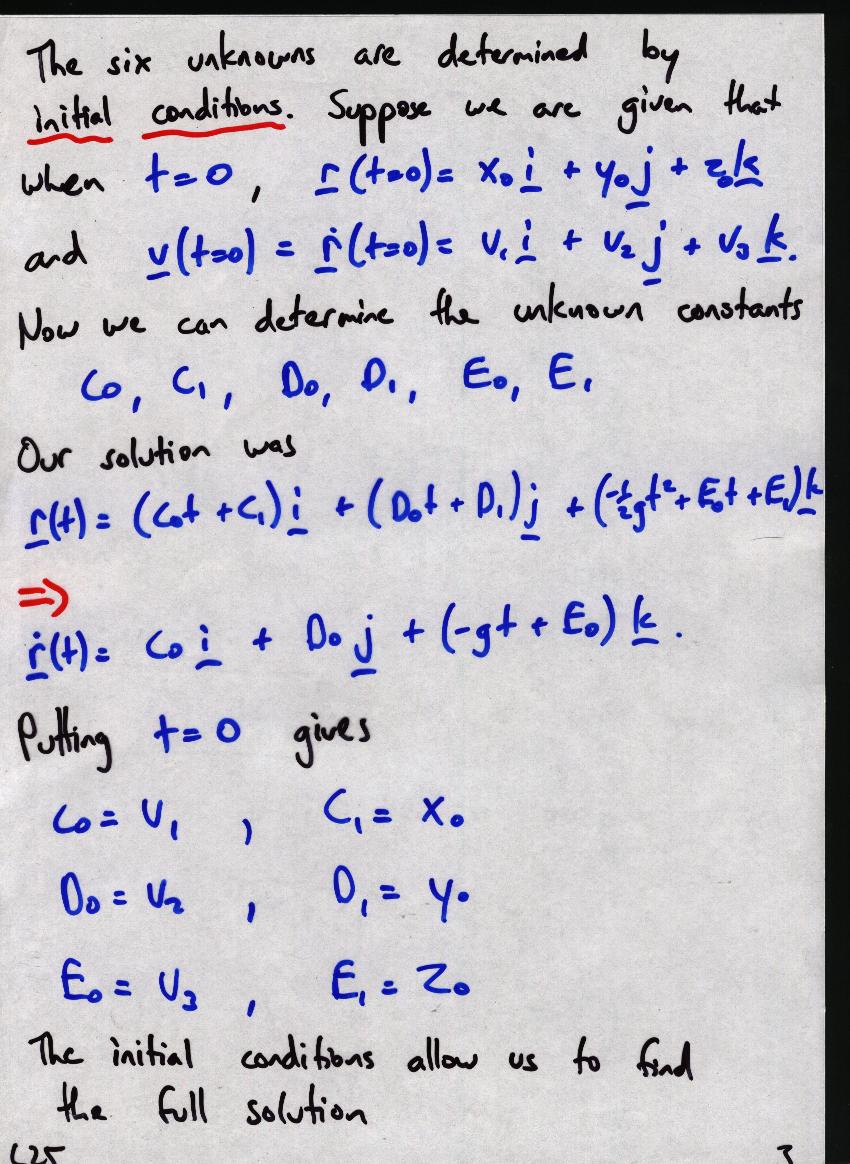 The six unknowns are determined by
initial conditions. Suppose we are given that
when t=0, r(t=0)= x₀ i + y₀ j + z₀ k
and v(t=0) = ṙ(t=0)= v₁ i + v₂ j + v₃ k.
Now we can determine the unknown constants
C₀, C₁, D₀, D₁, E₀, E₁
Our solution was
r(t)= (C₀t + C₁) i + (D₀t + D₁) j + (-½gt² + E₀t + E₁) k
⇒
ṙ(t)= C₀ i + D₀ j + (-gt + E₀) k.
Putting t=0 gives
C₀ = v₁ , C₁ = x₀
D₀ = v₂ , D₁ = y₀
E₀ = v₃ , E₁ = z₀
The initial conditions allow us to find
the full solution
L25 3